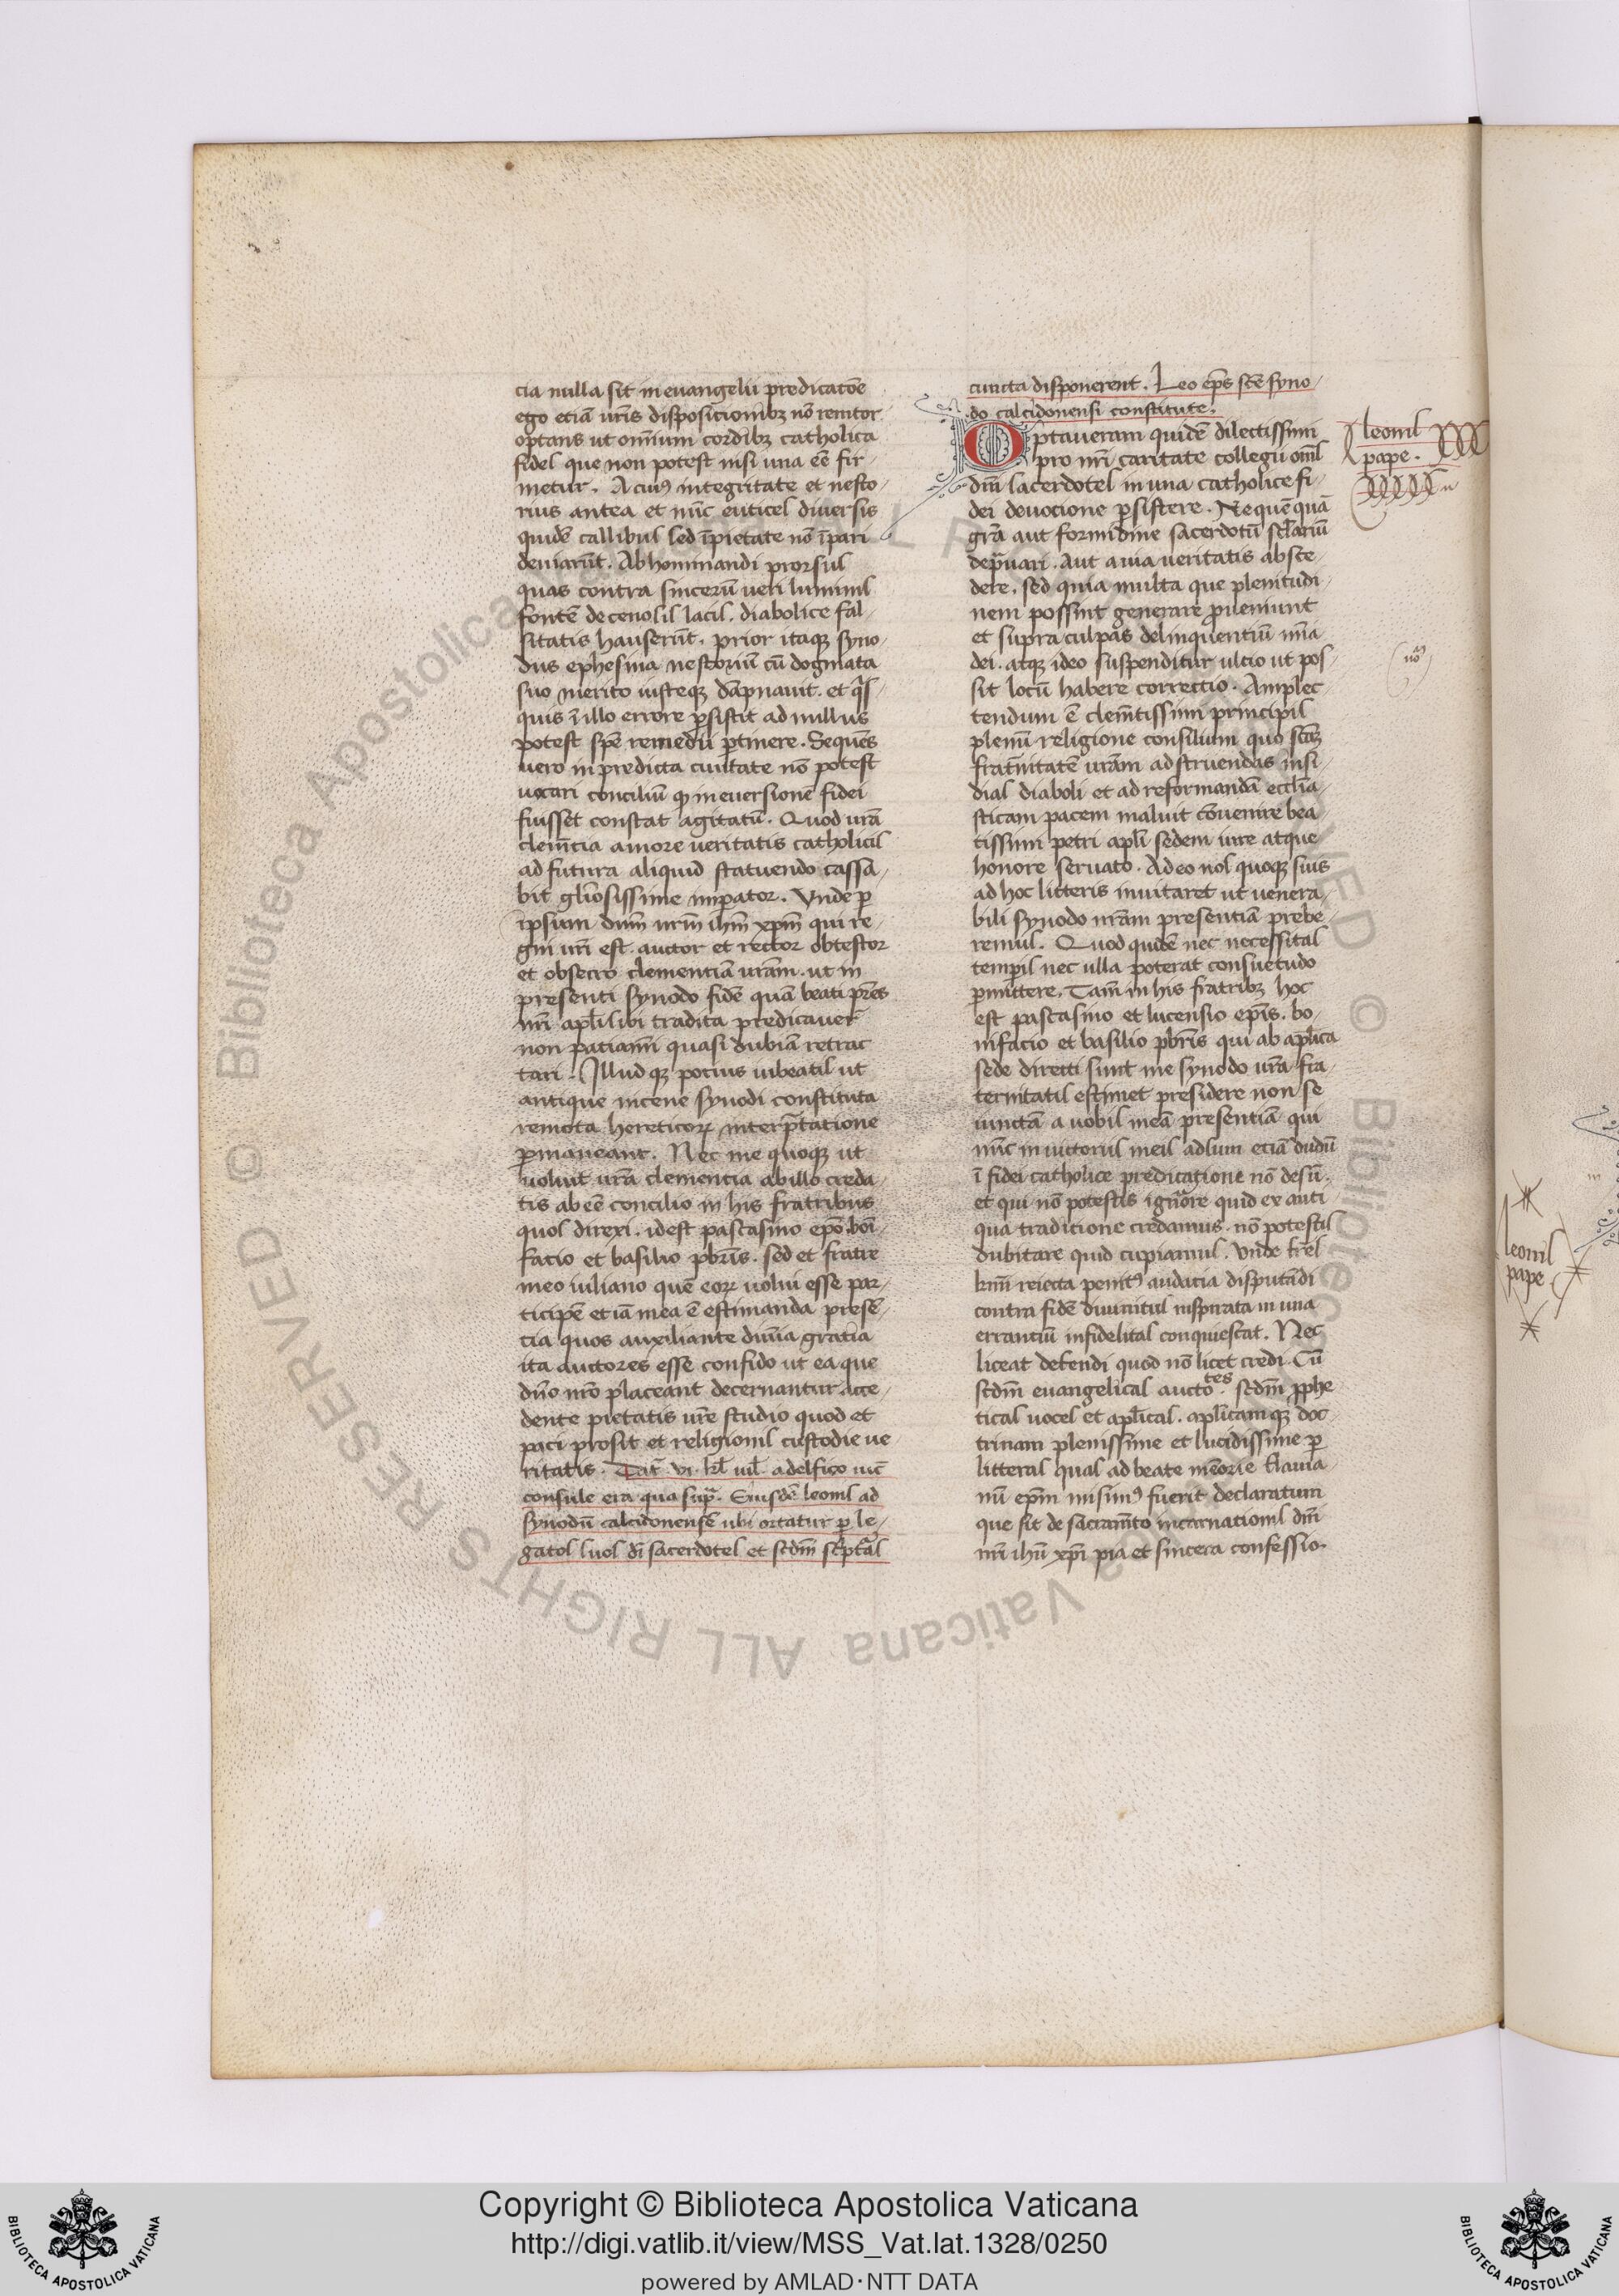 cia nulla sit in euangelii predicatōe
ego eciā urīs disposicionibꝫ nō renitor
optans ut omnium cordibꝫ catholica
fides que non potest nisi una eē fir-
metur. A cuiꝰ integritate et nesto-
rius antea et nūc euticel diuersis
quidē callibus sed īpietate nō īpari
deuiarūt. Abhominandi prorsus
quas contra sincerū ueri luminis
fontē de cenosis lacis. diabolice fal-
sitatis hauserūt. prior itaqꝫ syno-
dus ephesina nestoriū cū dogmata
suo merito iusteqꝫ dāpnauit. et qͥs-
quis ī illo errore ꝑsistit ad nullus
potest spē remedii ꝑtinere. Sequēs
uero in predicta ciuitate nō potest
uocari conciliū qꝫ in euersionē fidei
fuisset constat agitatū. Quod urā
clemētia amore ueritatis catholicis
ad futura aliquid statuendo cassa-
bit gliosissime imperator. Vnde ꝑ
ipsum dnm nrm ihm xpm qui re-
gni uri est auctor et rector obtestor
et obsecro clementiā uram. ut in
presenti synodo fidē quā beati pres
nri apli sibi tradita predicauer̄
non patiamī quasi dubiā retrac
tari. Illud qꝫ potius iubeatis ut
antique nicene synodi constituta
remota hereticoꝝ interpretatione
ꝑmaneant. Nec me quoqꝫ ut
uoluit urā clementia ab illo creda-
tis abeē concilio in his fratribus
quos direxi. idest pascasino epo boni-
facio et basilio pbris. sed et fratre
meo iuliano quē eoꝝ uolui esse par-
ticipē et iā mea ē estimanda presē-
cia quos auxiliante diuīa gratia
ita auctores esse confido ut ea que
dno nro placeant decernantur acce-
dente pietatis ure studio quod et
paci prosit et religionis custodie ue-
ritatis. Dat̄ vi. kl iul. adelfico uic
consule era qua supᵃ. Eiusdē leonis ad
synodū calcidonensē ubi ortatur ꝑ le-
gatos suos di sacerdotes et scdm scptas
cuncta disponerent. Leo eps scē syno-
do calcidonensi constitute.
Optaueram quidē dilectissimi
pro nri caritate collegii omīs
dnī sacerdotes in una catholice fi-
dei deuocione ꝑsistere. Nequē quā
grā aut formidine sacerdotū sclariū
deprauari. Aut a uia ueritatis absce-
dere. sed quia multa que plenitudi-
nem possint generare proueniunt
et supra culpas delinquentiū mīa
dei. atqꝫ ideo suspenditur ultio ut pos-
sit locū habere correctio. Amplec-
tendum ē clemētissimi principis
plenū religione consilium quo scam
fratnitatē urām ad struendas insi-
dias diaboli et ad reformandā ecclia-
sticam pacem maluit cōuenire bea-
tissimi petri apli sedem iure atque
honore seruato. Adeo nos quoqꝫ suis
ad hoc litteris inuitaret ut uenera-
bili synodo nram presentiā prebe-
remus. Quod quidē nec necessitas
tempis nec ulla poterat consuetudo
ꝑmittere. Tam in his fratribꝫ hoc
est pascasino et lucensio epis. bo-
nifacio et basilio pbris qui ab aplica
sede directi sunt me synodo ura fra-
ternitatis estimet presidere non se
iunctā a uobis meā presentiā qui
nūc in uictorus meis adsum etiā dudū
ī fidei catholice predicatione nō desū.
et qui nō potestis ignorare quid ex anti
qua traditione credamus. nō potestis
dubitare quid cupiamus. Vnde frēs
kmī reiecta penitꝰ audacia disputādi
contra fidē diuinitus inspirata in una
errantiū infidelitas conquiescat. Nec
liceat defendi quod nō licet credi. Cū
scdm euangelicas auctotes. scdm ꝓphe
ticas uoces et aplicas. aplicamqꝫ doc-
trinam plenissime et lucidissime ꝑ
litteras quas ad beate memorie flauia-
nū epm misimꝰ fuerit declaratum
que sit de sacramto incarnationis dni
nri ihu xpi pia et sincera confessio.
leonis
pape.
nō
leonis
pape
Copyright © Biblioteca Apostolica Vaticana
http://digi.vatlib.it/view/MSS_Vat.lat.1328/0250
powered by AMLAD·NTT DATA
BIBLIOTECA APOSTOLICA VATICANA
BIBLIOTECA APOSTOLICA VATICANA